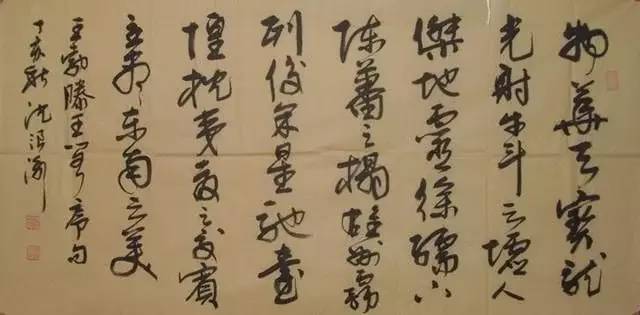 物華天寶龍
光射牛斗之墟人
傑地靈徐孺下
陳蕃之榻雄州霧
列俊采星馳臺
隍枕夷夏之交賓
主尽東南之美
王勃滕王閣序句
丁亥秋沈